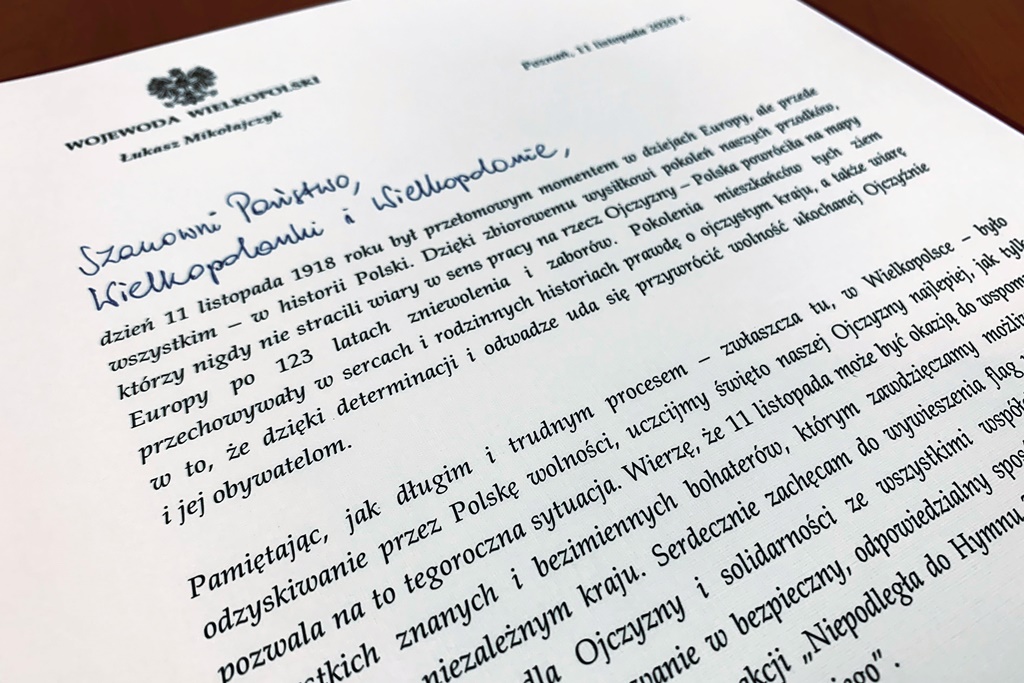 Poznań, 11 listopada 2020 r.
WOJEWODA WIELKOPOLSKI
Łukasz Mikołajczyk
Szanowni Państwo,
Wielkopolanki i Wielkopolanie,
dzień 11 listopada 1918 roku był przełomowym momentem w dziejach Europy, ale przede
wszystkim – w historii Polski. Dzięki zbiorowemu wysiłkowi pokoleń naszych przodków,
którzy nigdy nie stracili wiary w sens pracy na rzecz Ojczyzny – Polska powróciła na mapy
Europy po 123 latach zniewolenia i zaborów. Pokolenia mieszkańców tych ziem
przechowywały w sercach i rodzinnych historiach prawdę o ojczystym kraju, a także wiarę
w to, że dzięki determinacji i odwadze uda się przywrócić wolność ukochanej Ojczyźnie
i jej obywatelom.
Pamiętając, jak długim i trudnym procesem – zwłaszcza tu, w Wielkopolsce – było
odzyskiwanie przez Polskę wolności, uczcijmy święto naszej Ojczyzny najlepiej, jak tylk
pozwala na to tegoroczna sytuacja. Wierzę, że 11 listopada może być okazją do wspom
stkich znanych i bezimiennych bohaterów, którym zawdzięczamy możliw
niezależnym kraju. Serdecznie zachęcam do wywieszenia flag
dla Ojczyzny i solidarności ze wszystkimi współ
wanie w bezpieczny, odpowiedzialny spos
akcji „Niepodległa do Hymnu
iego”.